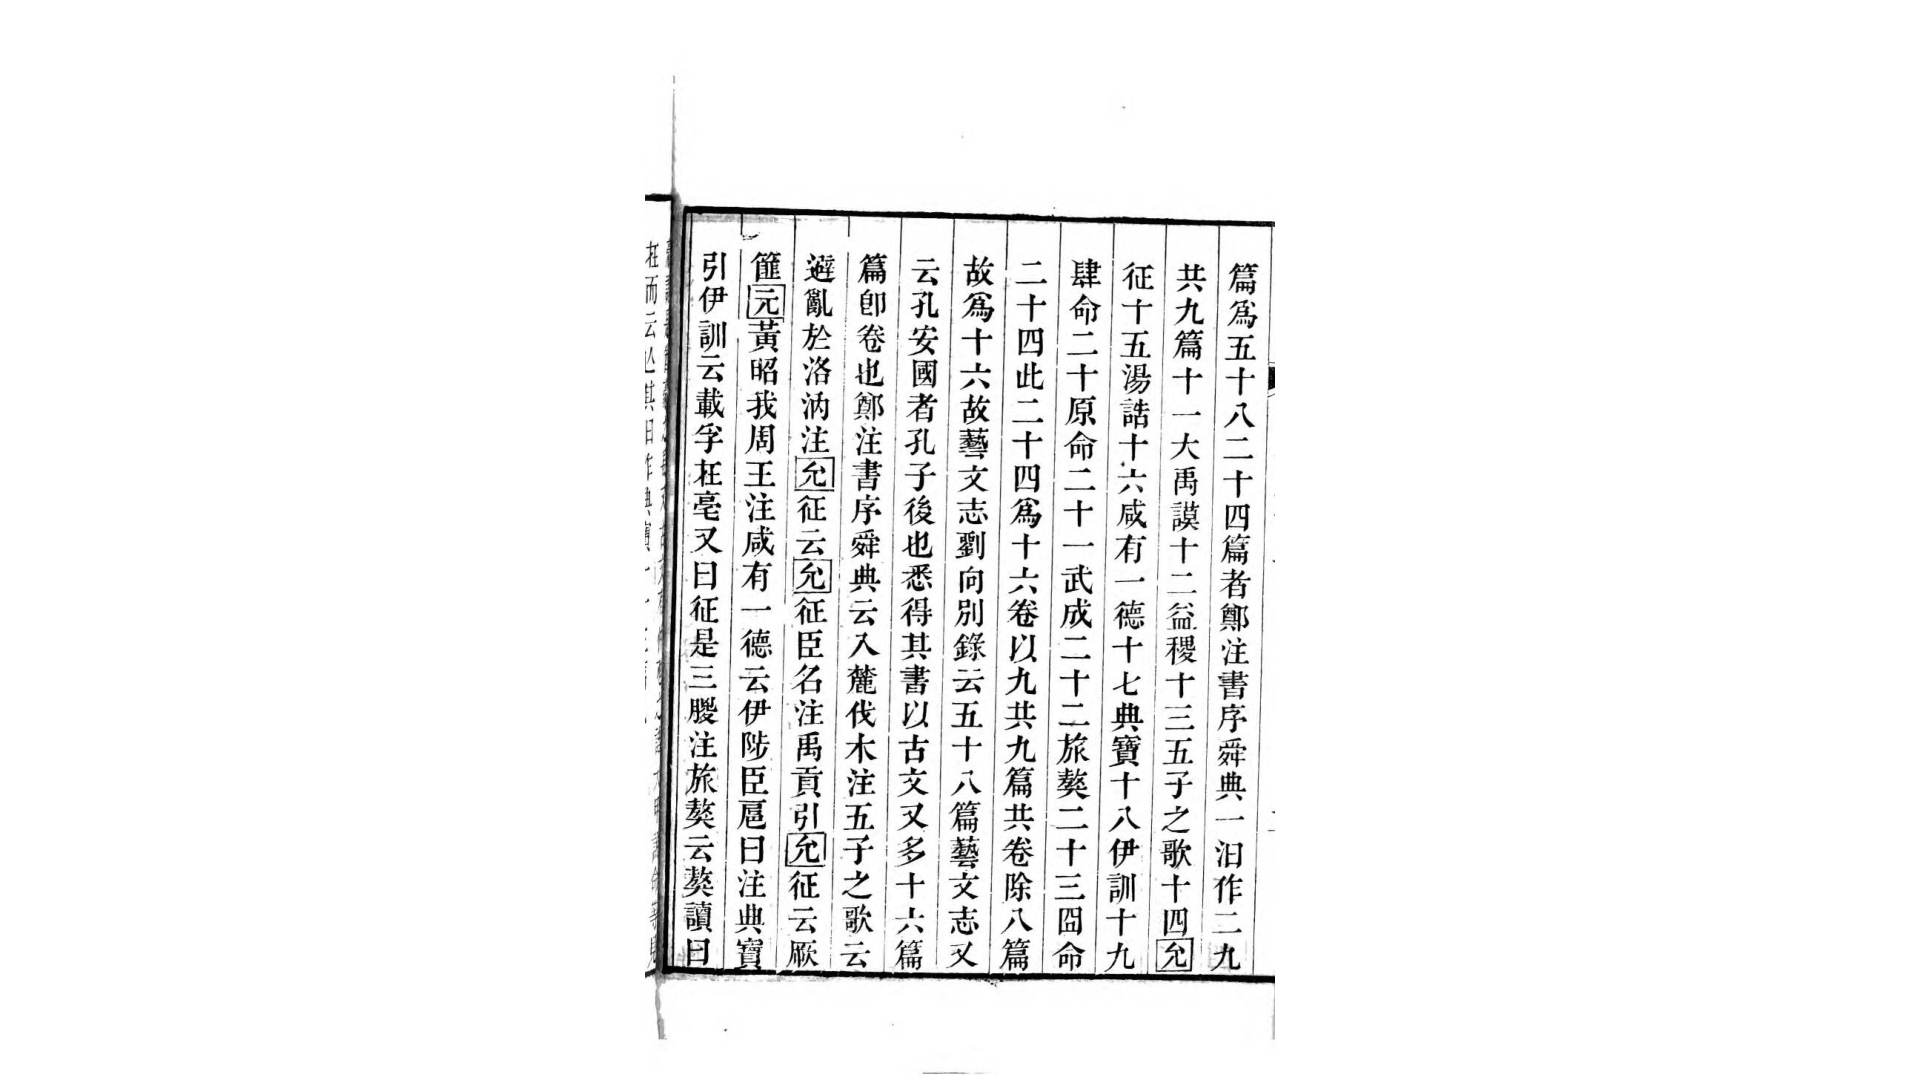 篇爲五十八二十四篇者鄭注書序舜典一汨作二九
共九篇十一大禹謨十二益稷十三五子之歌十四允
征十五湯誥十六咸有一德十七典寶十八伊訓十九
肆命二十原命二十一武成二十二旅獒二十三冏命
二十四此二十四爲十六卷以九共九篇共卷除八篇
故爲十六故藝文志劉向別錄云五十八篇藝文志又
云孔安國者孔子後也悉得其書以古文又多十六篇
篇卽卷也鄭注書序舜典云入麓伐木注五子之歌云
避亂於洛汭注允征云允征臣名注禹貢引允征云厥
篚元黃昭我周王注咸有一德云伊陟臣扈曰注典寶
引伊訓云載孚在亳又曰征是三朡注旅獒云獒讀曰